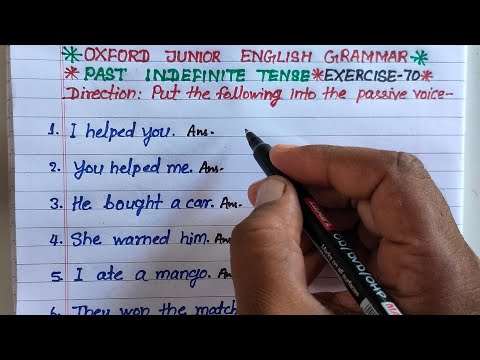 *OXFORD JUNIOR ENGLISH GRAMMAR*
*PAST INDEFINITE TENSE*EXERCISE-70*
Direction: Put the following into the passive voice-
1. I helped you. Ans-
2. You helped me. Ans-
3. He bought a car. Ans-
4. She warned him. Ans-
5. I ate a mango. Ans
6. They won the match
CD/DVD/OHP